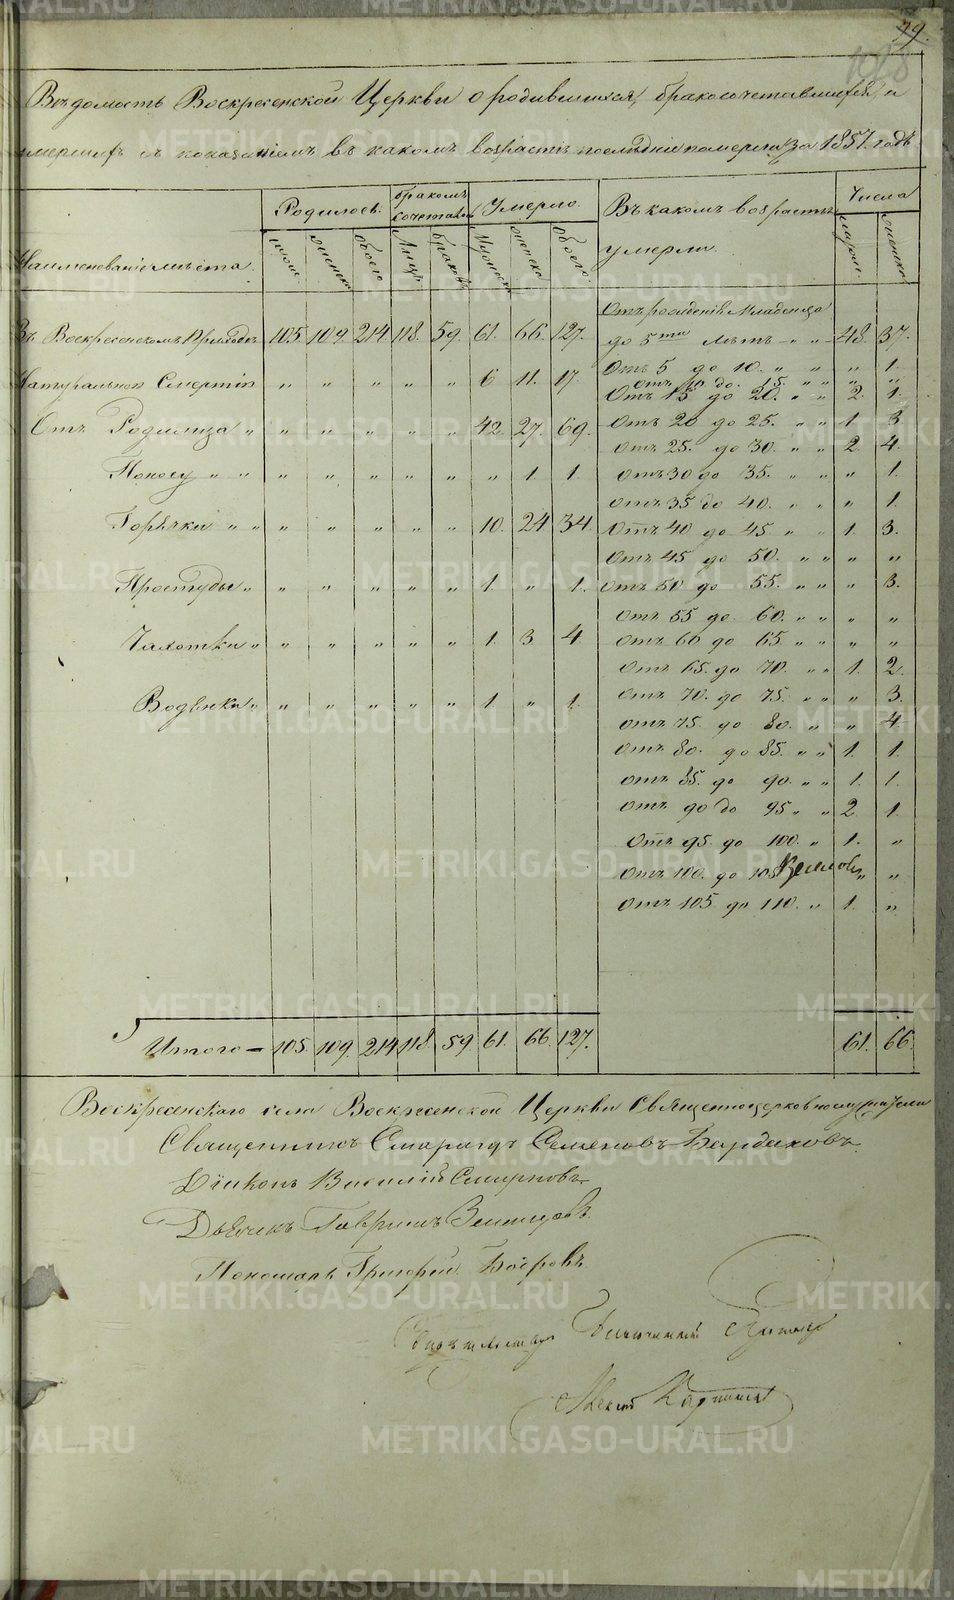 79.
108
Ведомость Воскресенской Церкви о родившихся, бракосочетавшихся, и
умершихъ съ показаніемъ въ какомъ возрастѣ последніе померли за 1857. годъ
Родилось. бракомъ сочетавш. Умерло. Въ какомъ возрастѣ умерли. Числа
Наименованіе мѣста. женска обоего Лицъ браковъ Мужеска женска обоего
Въ Воскресенскомъ Приходѣ 105. 109. 214. 118. 59. 61. 66. 127. Отъ рожденія Младенца
до 5ти лѣтъ " " 48. 37.
Натуральной Смертію " " " " " 6 11. 17. Отъ 5 до 10. " " " 1.
отъ 10 до 15. " " " "
Отъ 15 до 20. " " 2. 1.
Отъ Родимца " " " " " " 42. 27. 69. Отъ 20 до 25. " " 1 3
отъ 25. до 30. " " 2 4.
Поносу " " " " " " " " 1. 1. отъ 30 до 35. " " " 1.
отъ 35 до 40. " " " 1.
Горячки " " " " " " " 10. 24 34 Отъ 40 до 45 " " 1. 3.
отъ 45 до 50. " " " "
Простуды " " " " " " 1. " 1. отъ 50 до 55. " " " 3.
отъ 55 до 60. " " " "
Чахотки " " " " " " 1 3 4 отъ 60 до 65 " " " "
отъ 65. до 70. " " 1. 2.
Водянки " " " " " " 1. " 1. отъ 70. до 75. " " " 3.
отъ 75. до 80. " " 4.
отъ 80. до 85. " " 1. 1.
отъ 85. до 90. " " 1. 1.
отъ 90 до 95 " " 2 1.
отъ 95. до 100. " 1. "
отъ 100. до 105 " "
отъ 105 до 110. " 1. "
Итого — 105. 109. 214 118. 59. 61. 66. 127. 61. 66.
Воскресенскаго села Воскресенской Церкви Священноцерковнослужители
Священникъ Смарагдъ Семеновъ Бардаковъ
Діаконъ Василій Смирновъ
Дьячекъ Гавріилъ
Пономарь Григорій
METRIKI.GASO-URAL.RU